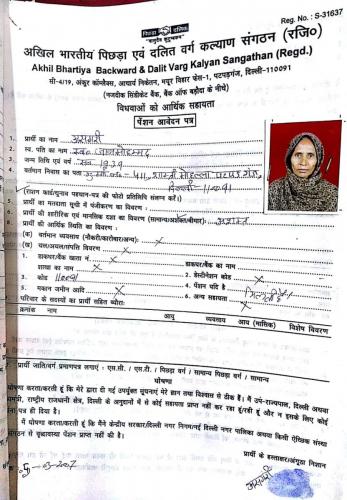 Reg. No. : S-31637
पिछड़ा दलित
अखिल भारतीय पिछड़ा एवं दलित वर्ग कल्याण संगठन (रजि०)
Akhil Bhartiya Backward & Dalit Varg Kalyan Sangathan (Regd.)
सी-4/19, अंकुर कॉम्प्लैक्स, आचार्य निकेतन, मयूर विहार फेस-1, पटपड़गंज, दिल्ली-110091
(नजदीक सिंडीकेट बैंक, बैंक ऑफ बड़ौदा के नीचे)
विधवाओं को आर्थिक सहायता
पेंशन आवेदन पत्र
1. प्रार्थी का नाम असगरी
2. स्व. पति का नाम स्व० जान मोहम्मद
3. जन्म तिथि एवं वर्ष सन् 1939
4. वर्तमान निवास का पता 411, शास्त्री मोहल्ला पटपड़ गंज,
दिल्ली-110091
(राशन कार्ड/चुनाव पहचान-पत्र की फोटो प्रतिलिपि संलग्न करें।)
प्रार्थी का मतदाता सूची में पंजीकरण का विवरण : X
प्रार्थी की शारीरिक एवं मानसिक दशा का विवरण (सामान्य/अशक्त/बीमार): अशक्त
प्रार्थी की आर्थिक स्थिति का विवरण :
वर्तमान व्यवसाय (नौकरी/कारोबार/अन्य): X
(ख) चल/अचल/संपत्ति विवरण : X
1. डाकघर/बैंक खाता नं. X डाकघर/बैंक का नाम X
शाखा का नाम X 2. डेस्टीनेशन कोड X
3. कोड 110091 4. पेंशन यदि है
5. मकान जमीन आदि X 6. अन्य सहायता X
परिवार के सदस्यों का प्रार्थी सहित ब्यौरा:
क्रमांक नाम आयु व्यवसाय आय (मासिक) विशेष विवरण
प्रार्थी जाति/वर्ग प्रमाणपत्र लगाएं : एस.सी. / एस.टी. / पिछड़ा वर्ग / सामान्य पिछड़ा वर्ग / सामान्य
घोषणा
घोषणा करता/करती हूं कि मेरे द्वारा दी गई उपर्युक्त सूचनाएं मेरे ज्ञान तथा विश्वास से ठीक हैं। मैं उप-राज्यपाल, दिल्ली अथवा
राष्ट्रीय राजधानी क्षेत्र, दिल्ली के अनुदानों में से कोई सहायता प्राप्त नहीं कर रहा हूं/रही हूं और न इसके लिए कोई
में घोषणा करता/करती हूं कि मैंने केन्द्रीय सरकार/दिल्ली नगर निगम/नई दिल्ली नगर पालिका अथवा किसी ऐच्छिक संस्था
संगठन से वृद्धावस्था पेंशन प्राप्त नहीं की है।
प्रार्थी के हस्ताक्षर/अंगूठा निशान
5-03-2007
असगरी